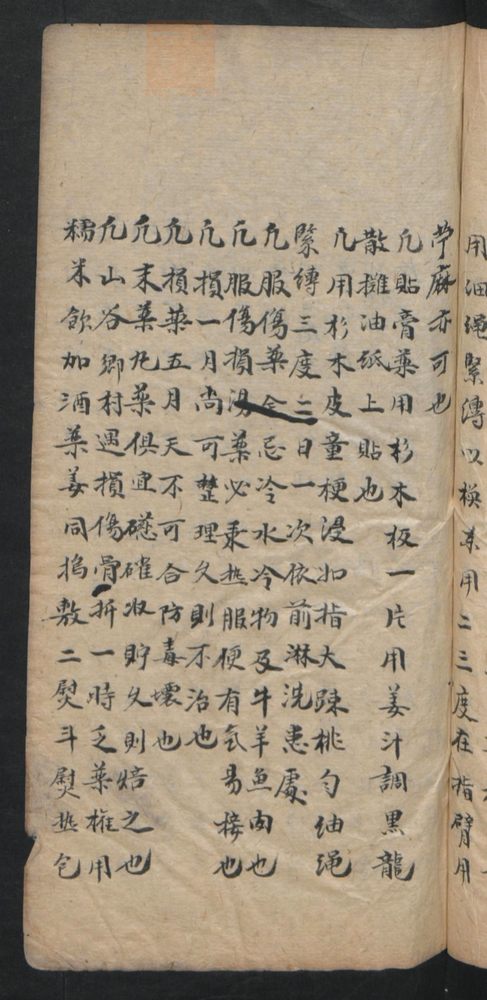 用細繩緊縛以模來用二三度在指臂用
苧麻亦可也
凢貼膏藥用杉木板一片用姜汁調黑龍
散攤油紙上貼也
凢用杉木皮童梗浸如指大踈桃勻細繩
緊縛三度二日一次依前淋洗患處
凢服傷藥全忌冷水冷物及牛羊魚肉也
凢服傷損湯藥必乗热服便有氣易接也
凢損一月尚可整理久則不治也
凢損藥五月天不可合防毒壞也
凢末藥九藥俱宜磁確收貯久則焙之也
凢山谷郷村遇損傷骨折一時乏藥權用
糯米飲加酒藥姜同搗敷二熨斗熨热包